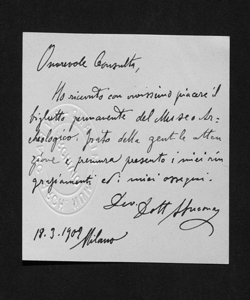 Onorevole Consulta,
Ho ricevuto con vivissimo piacere il
biglietto permanente del Museo Ar-
cheologico. Grato della gentile atten-
zione e premura presento i miei rin-
graziamenti ed i miei ossequi.
Dev. Dott
18.3.1909 Milano